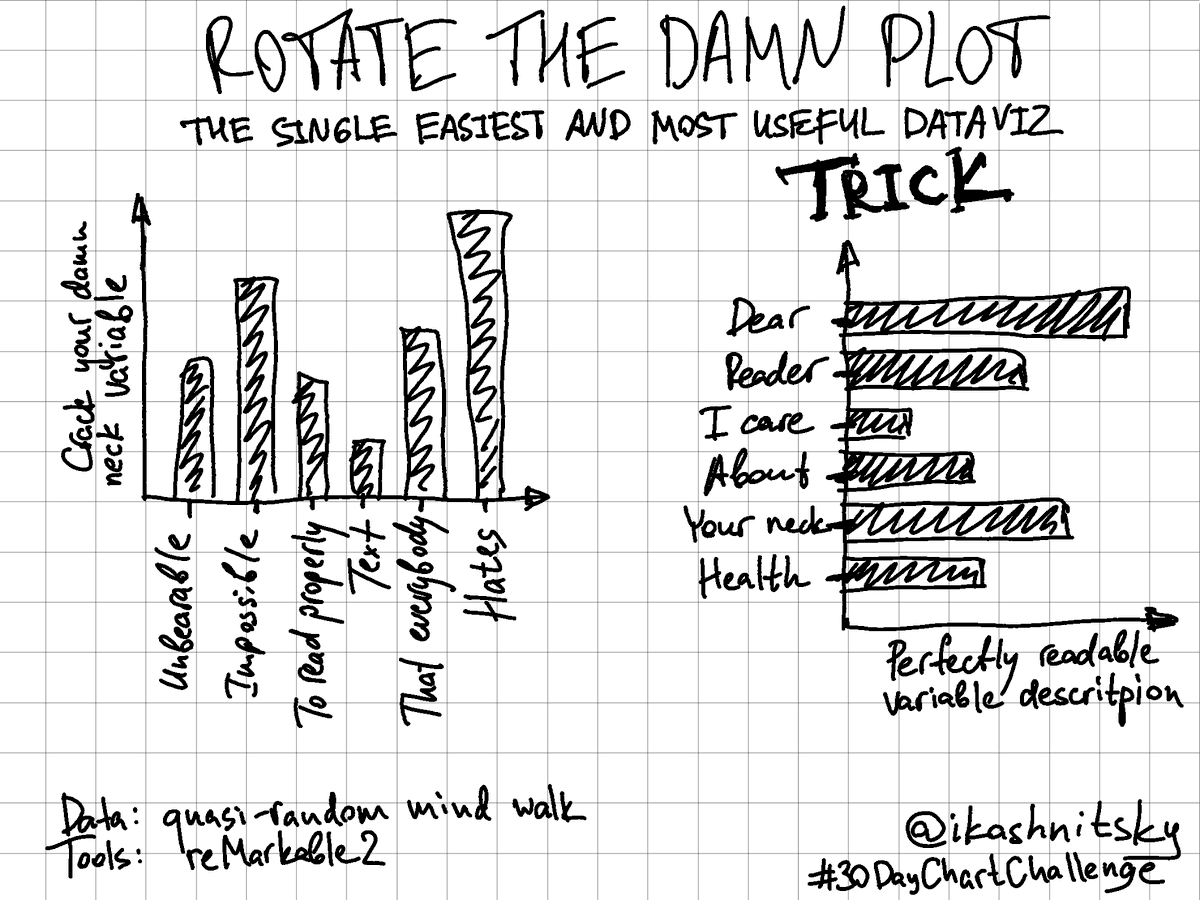 ROTATE THE DAMN PLOT
THE SINGLE EASIEST AND MOST USEFUL DATAVIZ
TRICK
Crack your damn
neck variable
Unbearable
Impossible
To read properly
Text
That everybody
Hates
Dear
Reader
I care
About
Your neck
Health
Perfectly readable
variable descritpion
Data: quasi-random mind walk
Tools: reMarkable2
@ikashnitsky
#30DayChartChallenge